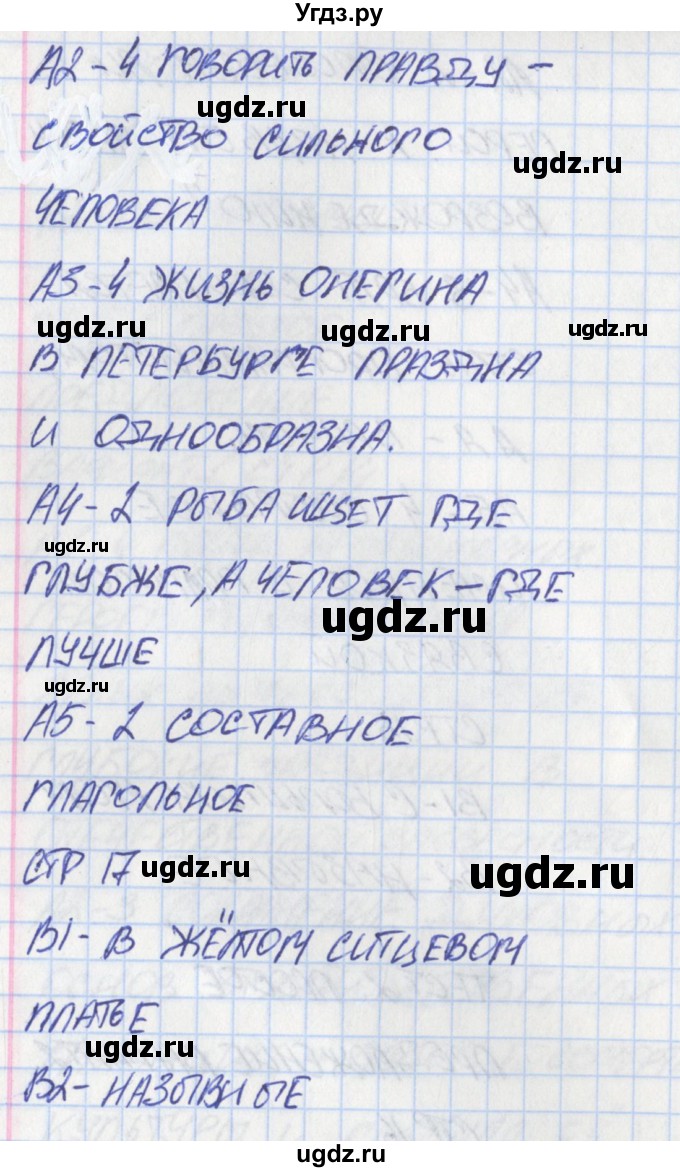 Угдз.ру
А2-4 ГОВОРИТЬ ПРАВДУ -
ugdz.ru
СВОЙСТВО СИЛЬНОГО
ugdz.ru
ЧЕЛОВЕКА
А3-4 ЖИЗНЬ ОНЕГИНА
ugdz.ru ugdz.ru ugdz.ru
В ПЕТЕРБУРГЕ ПРАЗДНА
И ОДНООБРАЗНА.
А4-2 РЫБА ИЩЕТ ГДЕ
ugdz.ru
ГЛУБЖЕ, А ЧЕЛОВЕК - ГДЕ
ugdz.ru
ЛУЧШЕ
ugdz.ru
А5-2 СОСТАВНОЕ
ГЛАГОЛЬНОЕ
СТР 17
ugdz.ru ugdz.ru
В1- В ЖЁЛТОМ СИТЦЕВОМ
ПЛАТЬЕ
ugdz.ru
В2- НАЗЫВНЫЕ
ugdz.ru